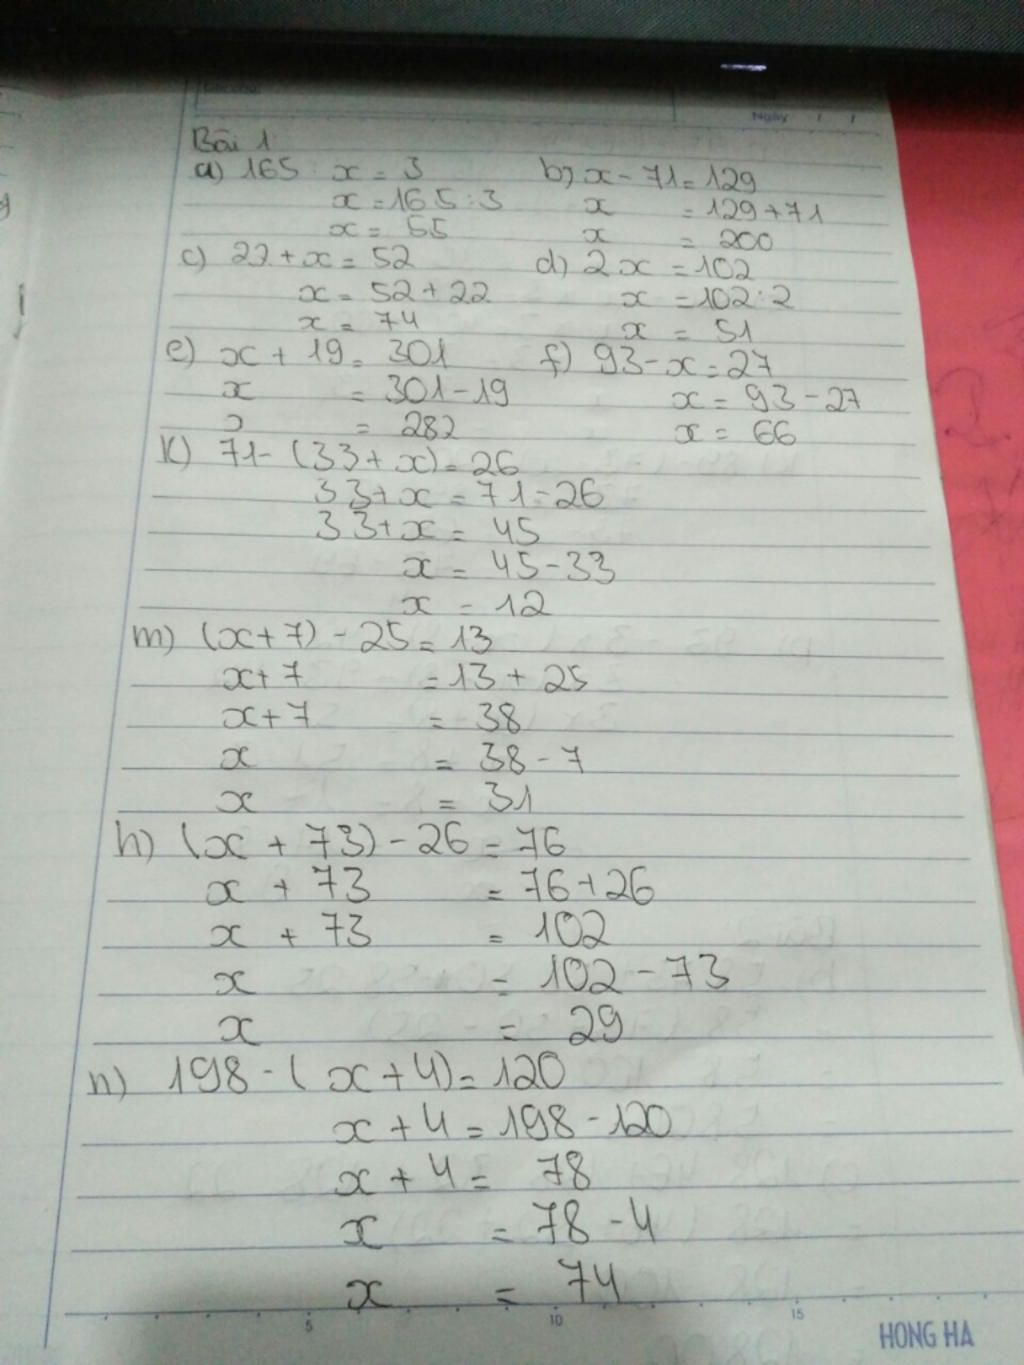 Ngày / /
Bài 1
a) 165 : x = 3 b) x - 71 = 129
x = 165 : 3 x = 129 + 71
x = 55 x = 200
c) 22 + x = 52 d) 2x = 102
x = 52 + 22 x = 102 : 2
x = 74 x = 51
e) x + 19 = 301 f) 93 - x = 27
x = 301 - 19 x = 93 - 27
= 282 x = 66
k) 71 - (33 + x) = 26
33 + x = 71 - 26
33 + x = 45
x = 45 - 33
x = 12
m) (x + 7) - 25 = 13
x + 7 = 13 + 25
x + 7 = 38
x = 38 - 7
x = 31
h) (x + 73) - 26 = 76
x + 73 = 76 + 26
x + 73 = 102
x = 102 - 73
x = 29
n) 198 - (x + 4) = 120
x + 4 = 198 - 120
x + 4 = 78
x = 78 - 4
x = 74
5 10 15
HONG HA